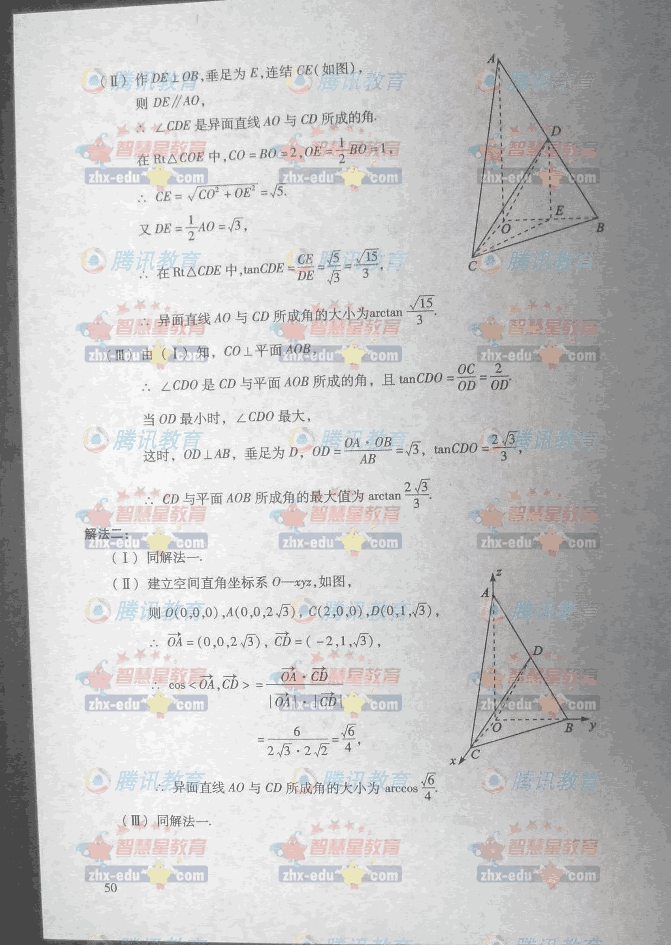 (Ⅱ) 作 DE⊥OB,垂足为 E,连结 CE(如图),
则 DE∥AO,
∴ ∠CDE 是异面直线 AO 与 CD 所成的角.
在 Rt△COE 中,CO=BO=2,OE=1/2BO=1,
∴ CE=√(CO²+OE²)=√5.
又 DE=1/2AO=√3,
∴ 在 Rt△CDE 中,tanCDE=CE/DE=√5/√3=√15/3,
∴ 异面直线 AO 与 CD 所成角的大小为arctan √15/3.
(Ⅲ) 由 (Ⅰ) 知, CO⊥平面 AOB,
∴ ∠CDO 是 CD 与平面 AOB 所成的角, 且 tanCDO=OC/OD=2/OD.
当 OD 最小时, ∠CDO 最大,
这时, OD⊥AB, 垂足为 D, OD=OA·OB/AB=√3, tanCDO=2√3/3,
∴ CD 与平面 AOB 所成角的最大值为 arctan 2√3/3.
A
D
O
E
B
C
解法二:
(Ⅰ) 同解法一.
(Ⅱ) 建立空间直角坐标系 O—xyz,如图,
则 O(0,0,0),A(0,0,2√3), C(2,0,0),D(0,1,√3),
∴ OA→=(0,0,2√3), CD→=(-2,1,√3),
∴ cos<OA→,CD→>=OA→·CD→/|OA→|·|CD→|
=6/2√3·2√2=√6/4,
∴ 异面直线 AO 与 CD 所成角的大小为 arccos √6/4.
(Ⅲ) 同解法一.
z
A
D
O
B
y
x
C
50
腾讯教育
智慧星教育
zhx-edu.com